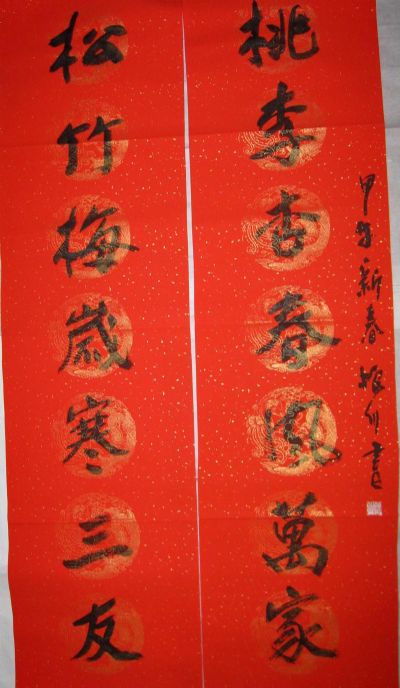 甲午新春書
桃李杏春風萬家
松竹梅嵗寒三友